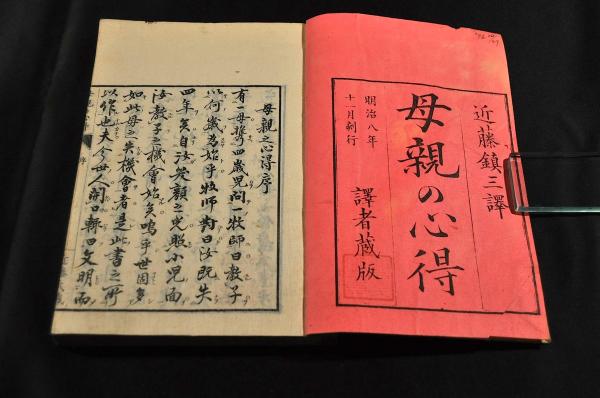 近藤鎮三譯
母親の心得
明治八年
十一月刻行
譯者蔵版
母親之心得序
有一母携四歳児問一牧師曰教子
以何歳為始乎牧師對曰汝既失
四年矣自汝笑顔之光照小児面
汝教子之機會始矣嗚乎世固多
如此母之失機會者是此書之所
以作也夫今世人開口輙曰文明而